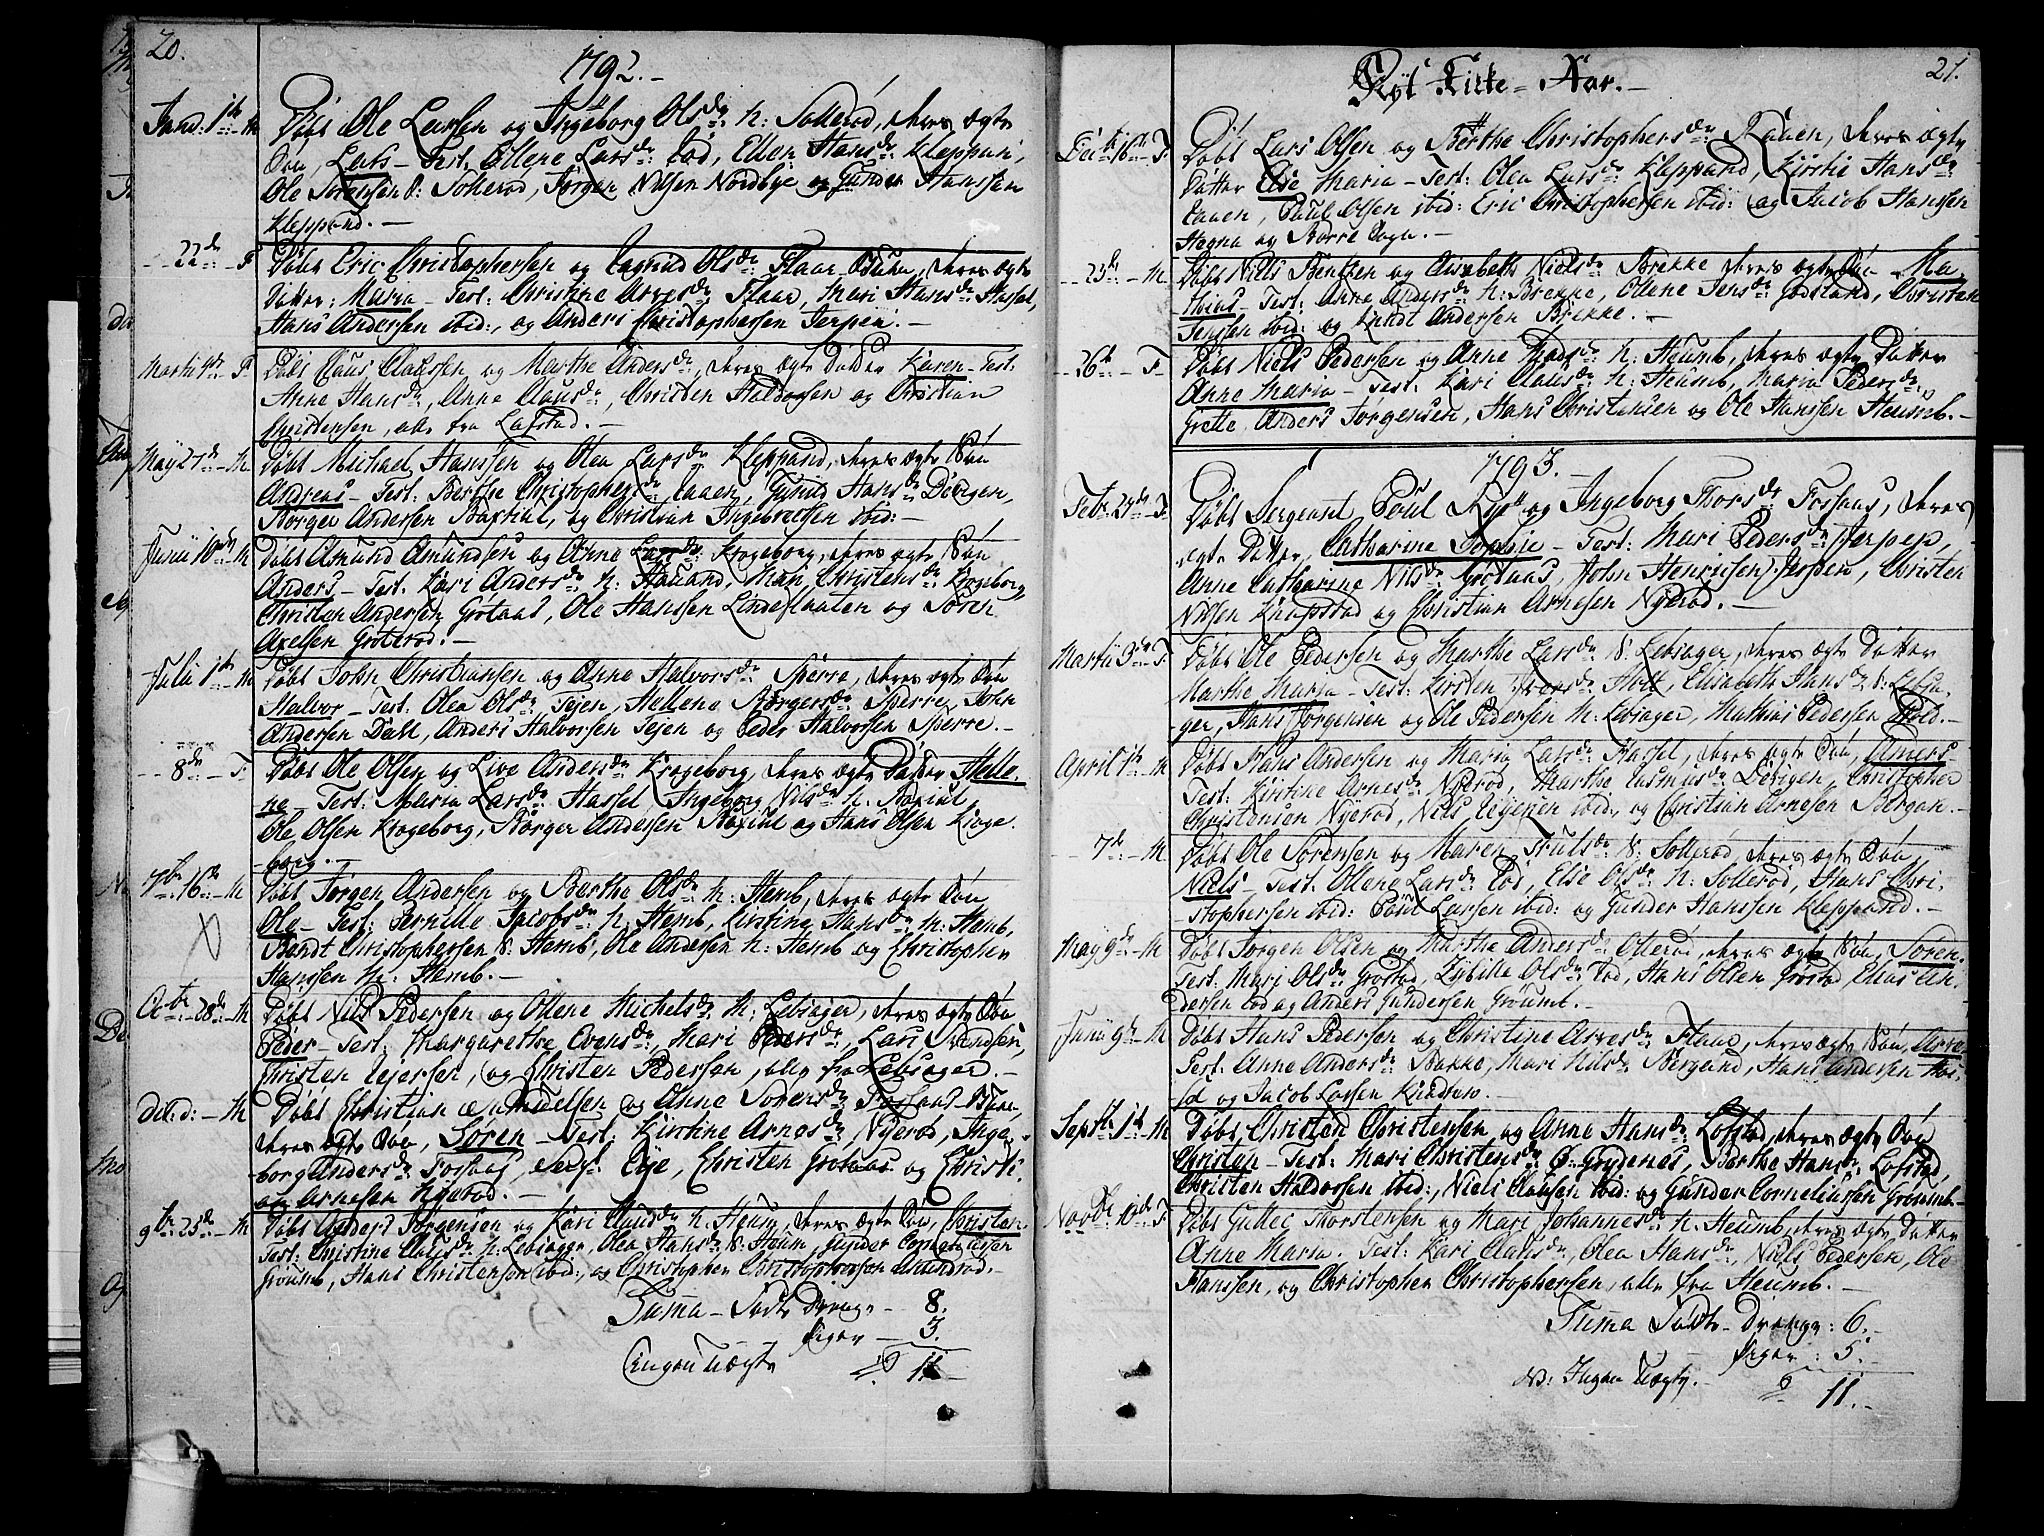 20.
1792.
Janu. 1te M Döbt Ole Larsen og Ingeborg Olsdr: N: Sollerød, deres ægte
Sön, Lars – Test: Ollene Larsdr: Rød, Ellen Hansdr: Kleppan,
Ole Sörensen S: Sollerød, Jörgen Nilsen Nordbye og Gunder Hanssen
Kleppand. –
22de – F Döbt Eric Christophersen og Ragnild Olsdr: Flaae, deres ægte
Datter: Maria – Test: Christine Arvesdr: Flaae, Mari Hansdr: Hassel,
Hans Andersen ibid:, og Anders Christophersen Jerpen. –
Martii 4de F Döbt Claus Clausen og Marthe Andersdr:, deres ægte Datter Karen – Test:
Anne Hansdr:, Anne Clausdr:, Christen Haldorsen og Christian
Christensen, alle fra Lofstad. –
May 27de – M Döbt Michael Hanssen og Olea Larsdr: Kleppand, deres ægte Sön
Andreas – Test: Berthe Christophersdr: Raaen, Gunild Hansdr: Dövigen,
Borger Andersen Baxtial, og Christian Ingebretsen ibid: –
Junii 10de M Döbt Asmund Amundsen og Anne Larsdr: Krogeborg, deres ægte Sön
Anders – Test: Kari Andersdr: N: Hauand, Mari Christensdr: Krogeborg,
Christen Andersen Grotaas, Ole Hanssen Lindeslaaten og Sören
Axelsen Groterød. –
Julii 1te M Döbt John Christiansen og Anne Halvorsdr: Sperre, deres ægte Sön
Halvor – Test: Olea Olsdr: Tejen, Hellene Borgersdr: Sperre, John
Andersen Dahl, Anders Halvorsen Tejen og Peder Halvorsen Sperre. –
8de – F. Döbt Ole Olsen og Live Andersdr: Krogeborg, deres ægte Datter Helle-
ne – Test: Maria Larsdr: Hassel, Ingeborg Nilsdr: N: Baxtial,
Ole Olsen Krogeborg, Borger Andersen Baxtial og Hans Olsen Kroge-
borg. –
7br. 16de M Döbt Jörgen Andersen og Berthe Olsdr: N: Hemb, deres ægte Sön
Ole – Test: Pernille Jacobsdr: N: Hemb, Kirstine Hansdr: N: Hemb,
Bendt Christophersen S: Hemb, Ole Andersen N: Hemb og Christopher
Hanssen N: Hemb. –
Octbr 28de M Döbt Niels Pedersen og Ollene Michelsdr: N: Lebsager, deres ægte Sön
Peder – Test: Margarethe Evensdr:, Mari Pedersdr:, Lars Svendsen,
Christen Ejersen, og Christen Pedersen, alle fra Lebsager. –
Dito: d: – M Döbt Christian Samuelsen og Anne Sörensdr: Fossaas-
deres ægte Sön, Sören – Test: Kirstine Arnesdr: Nyerød, Inge-
borg Andersdr: Fossaas, Rye, Christen Grotaas og Christi-
an Arnesen Nyerød. –
9br 25de – M Döbt Anders Jörgensen og Kari Clausdr: N: Heum, deres ægte Sön, Christen
Test: Christine Nilsdr: N: Lebsager, Olea Hansdr: S: Heum, Gunder Corneliussen
Groumb, Hans Christensen ibid:, og Christopher Christophersen. –
Suma – Födte Drenge – 8.
Piger – 3.
Ingen Uægte 11. –
21.
Nyt Kirke-Aar. –
Decbr 16de F. Döbt Lars Olsen og Berthe Christophersdr: Raaen, deres ægte
Datter Else Maria – Test: Olea Larsdr: Kleppand, Kirstie Hansdr:
Raaen, Poul Olsen ibid: Eric Christophersen ibid: og Jacob Hanssen
Hogna og Borre Sogn. –
23de – M Döbt Niels Bentzen og Anne Elisabeth Nielsdr: Brekke deres ægte Sön Ma-
thias – Test: Anne Andersdr: N: Brekke, Ollene Jensdr: Godsland, Christen
Jensen ibid: og Knudt Andersen Brekke. –
26de – F. Döbt Niels Pedersen og Anne N: Heumb, deres ægte Datter
Anne Maria – Test: Kari Clausdr: N: Heumb, Maria Pedersdr:
Grette, Anders Jörgensen, Hans Christensen og Ole Hanssen Heumb. –
1793. –
Febr. 24de F. Döbt Sergeant Poul Rye og Ingeborg Thorsdr: Fossaas, deres
ægte Datter, Catharine Sophie – Test: Mari Pedersdr: Jerpen,
Anne Catharine Nilsdr: Grotaas, John Henricsen Jerpen, Christen
Nilsen Knapstad og Christian Arnesen Nyerød. –
Martii 3de F. Döbt Ole Pedersen og Marthe Larsdr: S: Lebsager, deres ægte Datter
Marthe Maria – Test: Kirsten Iversdr: Holt, Elisabeth Hansdr: S: Lebsa-
ger, Hans Jörgensen og Ole Pedersen N: Lebsager, Mathias Pedersen Hold. –
April 1te M Döbt Hans Andersen og Maria Larsdr: Hassel, deres ægte Sön, Anders –
Test: Kirstine Arnesdr: Nyerød, Marthe Rasmusdr: Dövigen, Christopher
Christenson Nyerød, Niels ibid:, og Christian Arnesen Bergan. –
7de – M Döbt Ole Sörensen og Maren Trulsdr: S: Sollerød, deres ægte Sön
Niels – Test: Ollene Larsdr: Rød, Else Olsdr: N: Sollerød, Hans Chri-
stophersen ibid: Poul Larsen ibid: og Gunder Hanssen Kleppand. –
May 9de – M Döbt Jörgen Olsen og Marthe Andersdr:, deres ægte Sön, Sören.
Test: Mari Olsdr: Grostad, Zybille Olsdr: Rød, Hans Olsen Grostad, Claus An-
dersen Rød og Anders Gundersen Groumb. –
Junii 9de M Döbt Hans Pedersen og Christine Arvesdr: Flaae, deres ægte Sön, Arve.
Test: Anne Andersdr: Bakke, Mari Nilsdr: Bergand, Hans Andersen Has-
sel og Jacob Larsen Kindrew. –
Septbr 1te M Döbt Christen Christensen og Anne Hansdr: Lofstad, deres ægte Sön
Christen – Test: Mari Christensdr: Ø: Grydenes, Berthe Hansdr: Lofstad,
Christen Haldorsen ibid:, Niels Clausen ibid: og Gunder Corneliussen Groumb –
Novbr 10de F. Döbt Gullec Thorstensen og Mari Johannesdr: N: Heumb, deres ægte Datter
Anne Maria. Test: Kari Clausdr:, Olea Hansdr:, Niels Pedersen, Ole
Hanssen, og Christopher Christophersen, alle fra Heumb. –
Suma Födte – Drenge: 6. –
Piger: 5. –
NB: Ingen Uægte. – 11. –